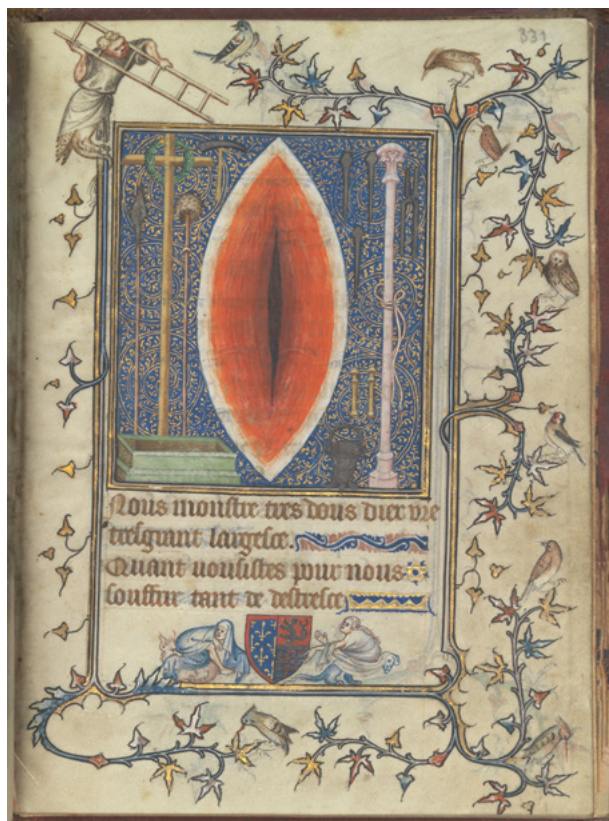 331
Nous monstre tres dous dieu vre
tresgrant largesce.
Quant vousistes pour nous
souffrir tant de destresce